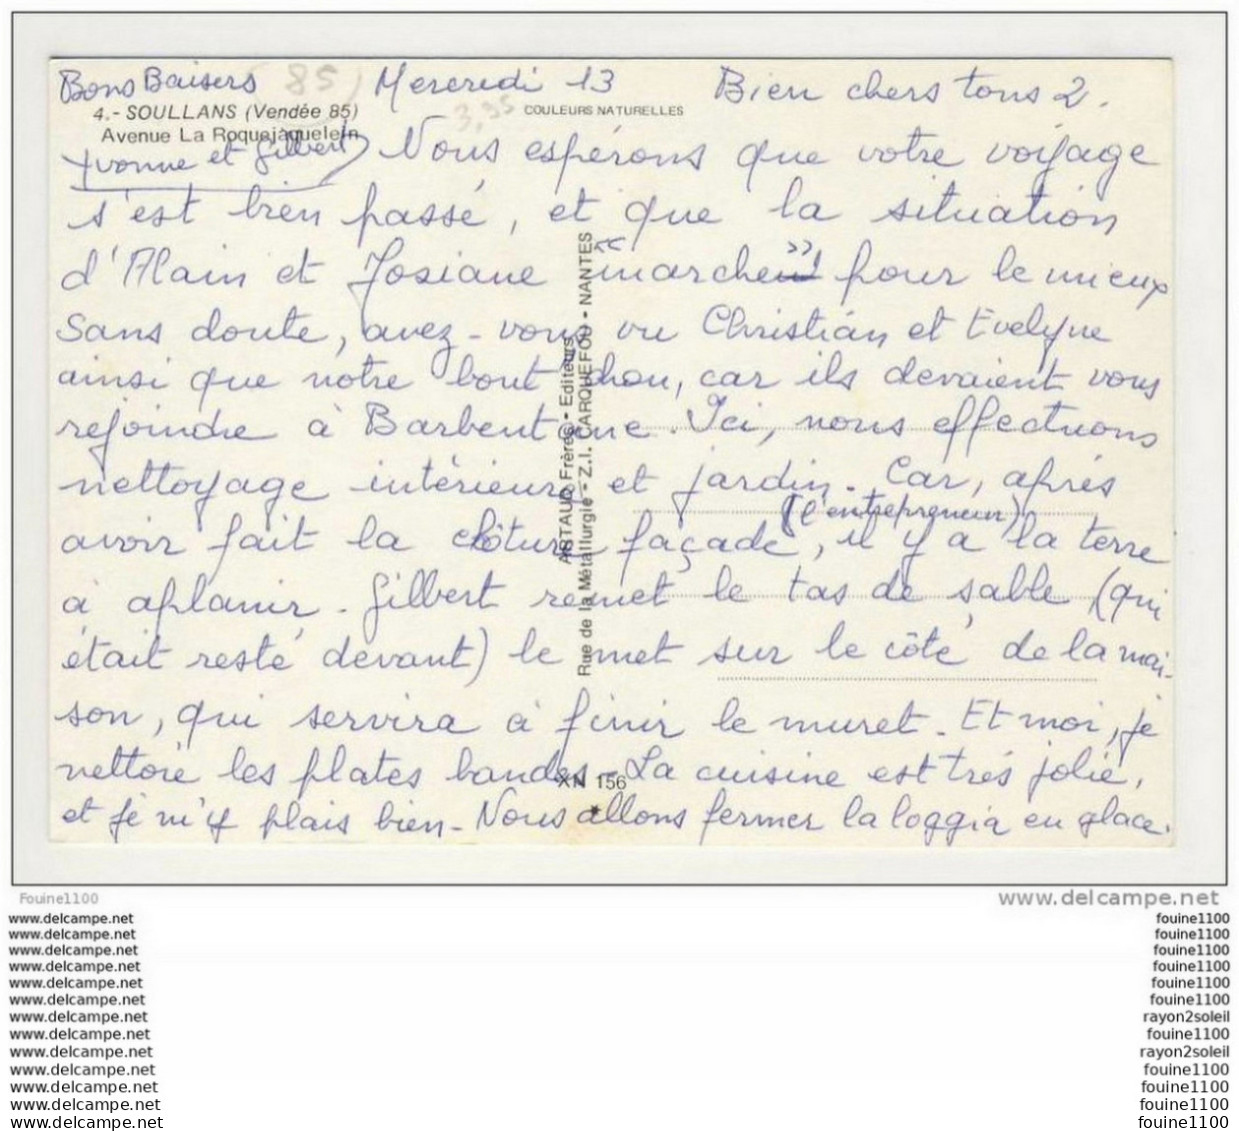 Bons Baisers (85) Mercredi 13 Bien chers tous 2.
4.- SOULLANS (Vendée 85) 3,95 COULEURS NATURELLES
Avenue La Roquejaquelein
Yvonne et Gilbert Nous espérons que votre voyage
s'est bien passé, et que la situation
d'Alain et Josiane "marche" pour le mieux
Sans doute, avez-vous vu Christian et Evelyne
ainsi que notre bout d'chou, car ils devaient vous
rejoindre à Barbentane. Ici, nous effectuons
nettoyage intérieur et jardin. Car, après
(l'entrepreneur)
avoir fait la clôture façade, il y a la terre
à aplanir. Gilbert remet le tas de sable (qui
était resté devant) le met sur le côté de la mai-
son, qui servira à finir le muret. Et moi, je
nettoie les plates bandes. La cuisine est très jolie,
et je m'y plais bien. Nous allons fermer la loggia en glace.
ARTAUD Frères • Editeurs
Rue de la Métallurgie - Z.I. CARQUEFOU • NANTES
XN 156
Fouine1100 www.delcampe.net
www.delcampe.net fouine1100
www.delcampe.net fouine1100
www.delcampe.net fouine1100
www.delcampe.net fouine1100
www.delcampe.net fouine1100
www.delcampe.net fouine1100
www.delcampe.net rayon2soleil
www.delcampe.net fouine1100
www.delcampe.net rayon2soleil
www.delcampe.net fouine1100
www.delcampe.net fouine1100
www.delcampe.net fouine1100
www.delcampe.net fouine1100